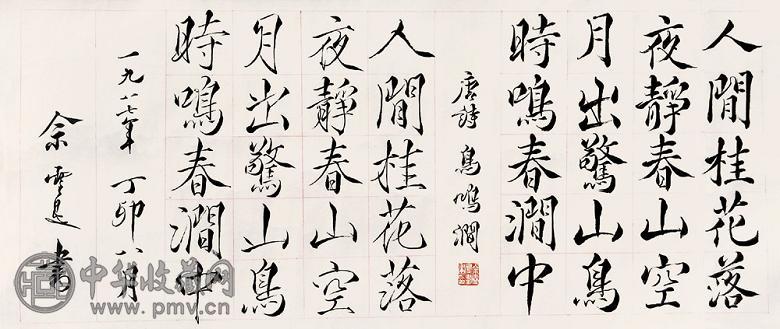 人閒桂花落
夜靜春山空
月出驚山鳥
時鳴春澗中
唐詩 鳥鳴澗
人閒桂花落
夜靜春山空
月出驚山鳥
時鳴春澗中
一九八七年 丁卯八月
余 書
中华收藏网
www.pmv.cn